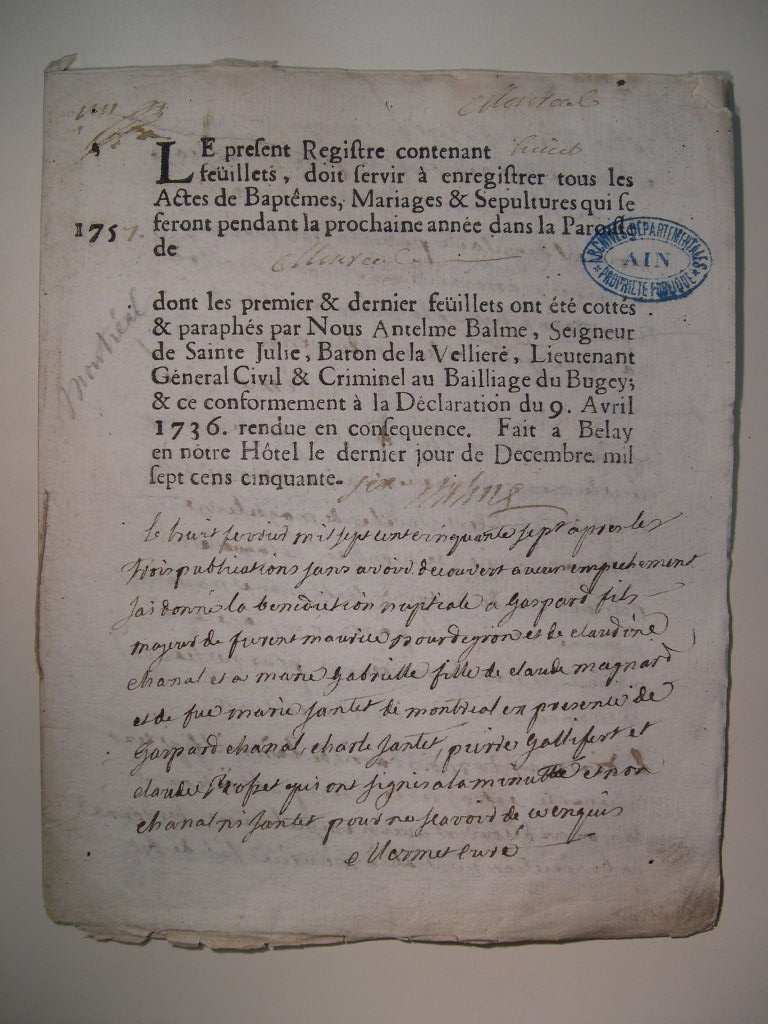 Montreal
LE present Registre contenant huict
feüillets, doit servir à enregistrer tous les
Actes de Baptêmes, Mariages & Sepultures qui se
1757. feront pendant la prochaine année dans la Paroisse
de Montreal
ARCHIVES DÉPARTEMENTALES
AIN
PROPRIÉTÉ PUBLIQUE
Montréal
dont les premier & dernier feüillets ont été cottés
& paraphés par Nous Antelme Balme, Seigneur
de Sainte Julie, Baron de la Vellieré, Lieutenant
Géneral Civil & Criminel au Bailliage du Bugey;
& ce conformement à la Déclaration du 9. Avril
1736. rendue en consequence. Fait a Belay
en nôtre Hôtel le dernier jour de Decembre mil
sept cens cinquante-six
le huit fevrier mil sept cent cinquante sept apres les
trois publications sans avoir decouvert aucun empechement
jai donné la benediction nuptiale a Gaspard fils
majeur de maurice et de claudine
chanal et a marie Gabrielle fille de claude magnard
et de fue marie jantet de montreal en presence de
Gaspard chanal, charle jantet, pierre Gallifert et
claude qui ont signés a la minutte et non
chanal ni jantet pour ne scavoir de ce enquis
Mermet curé